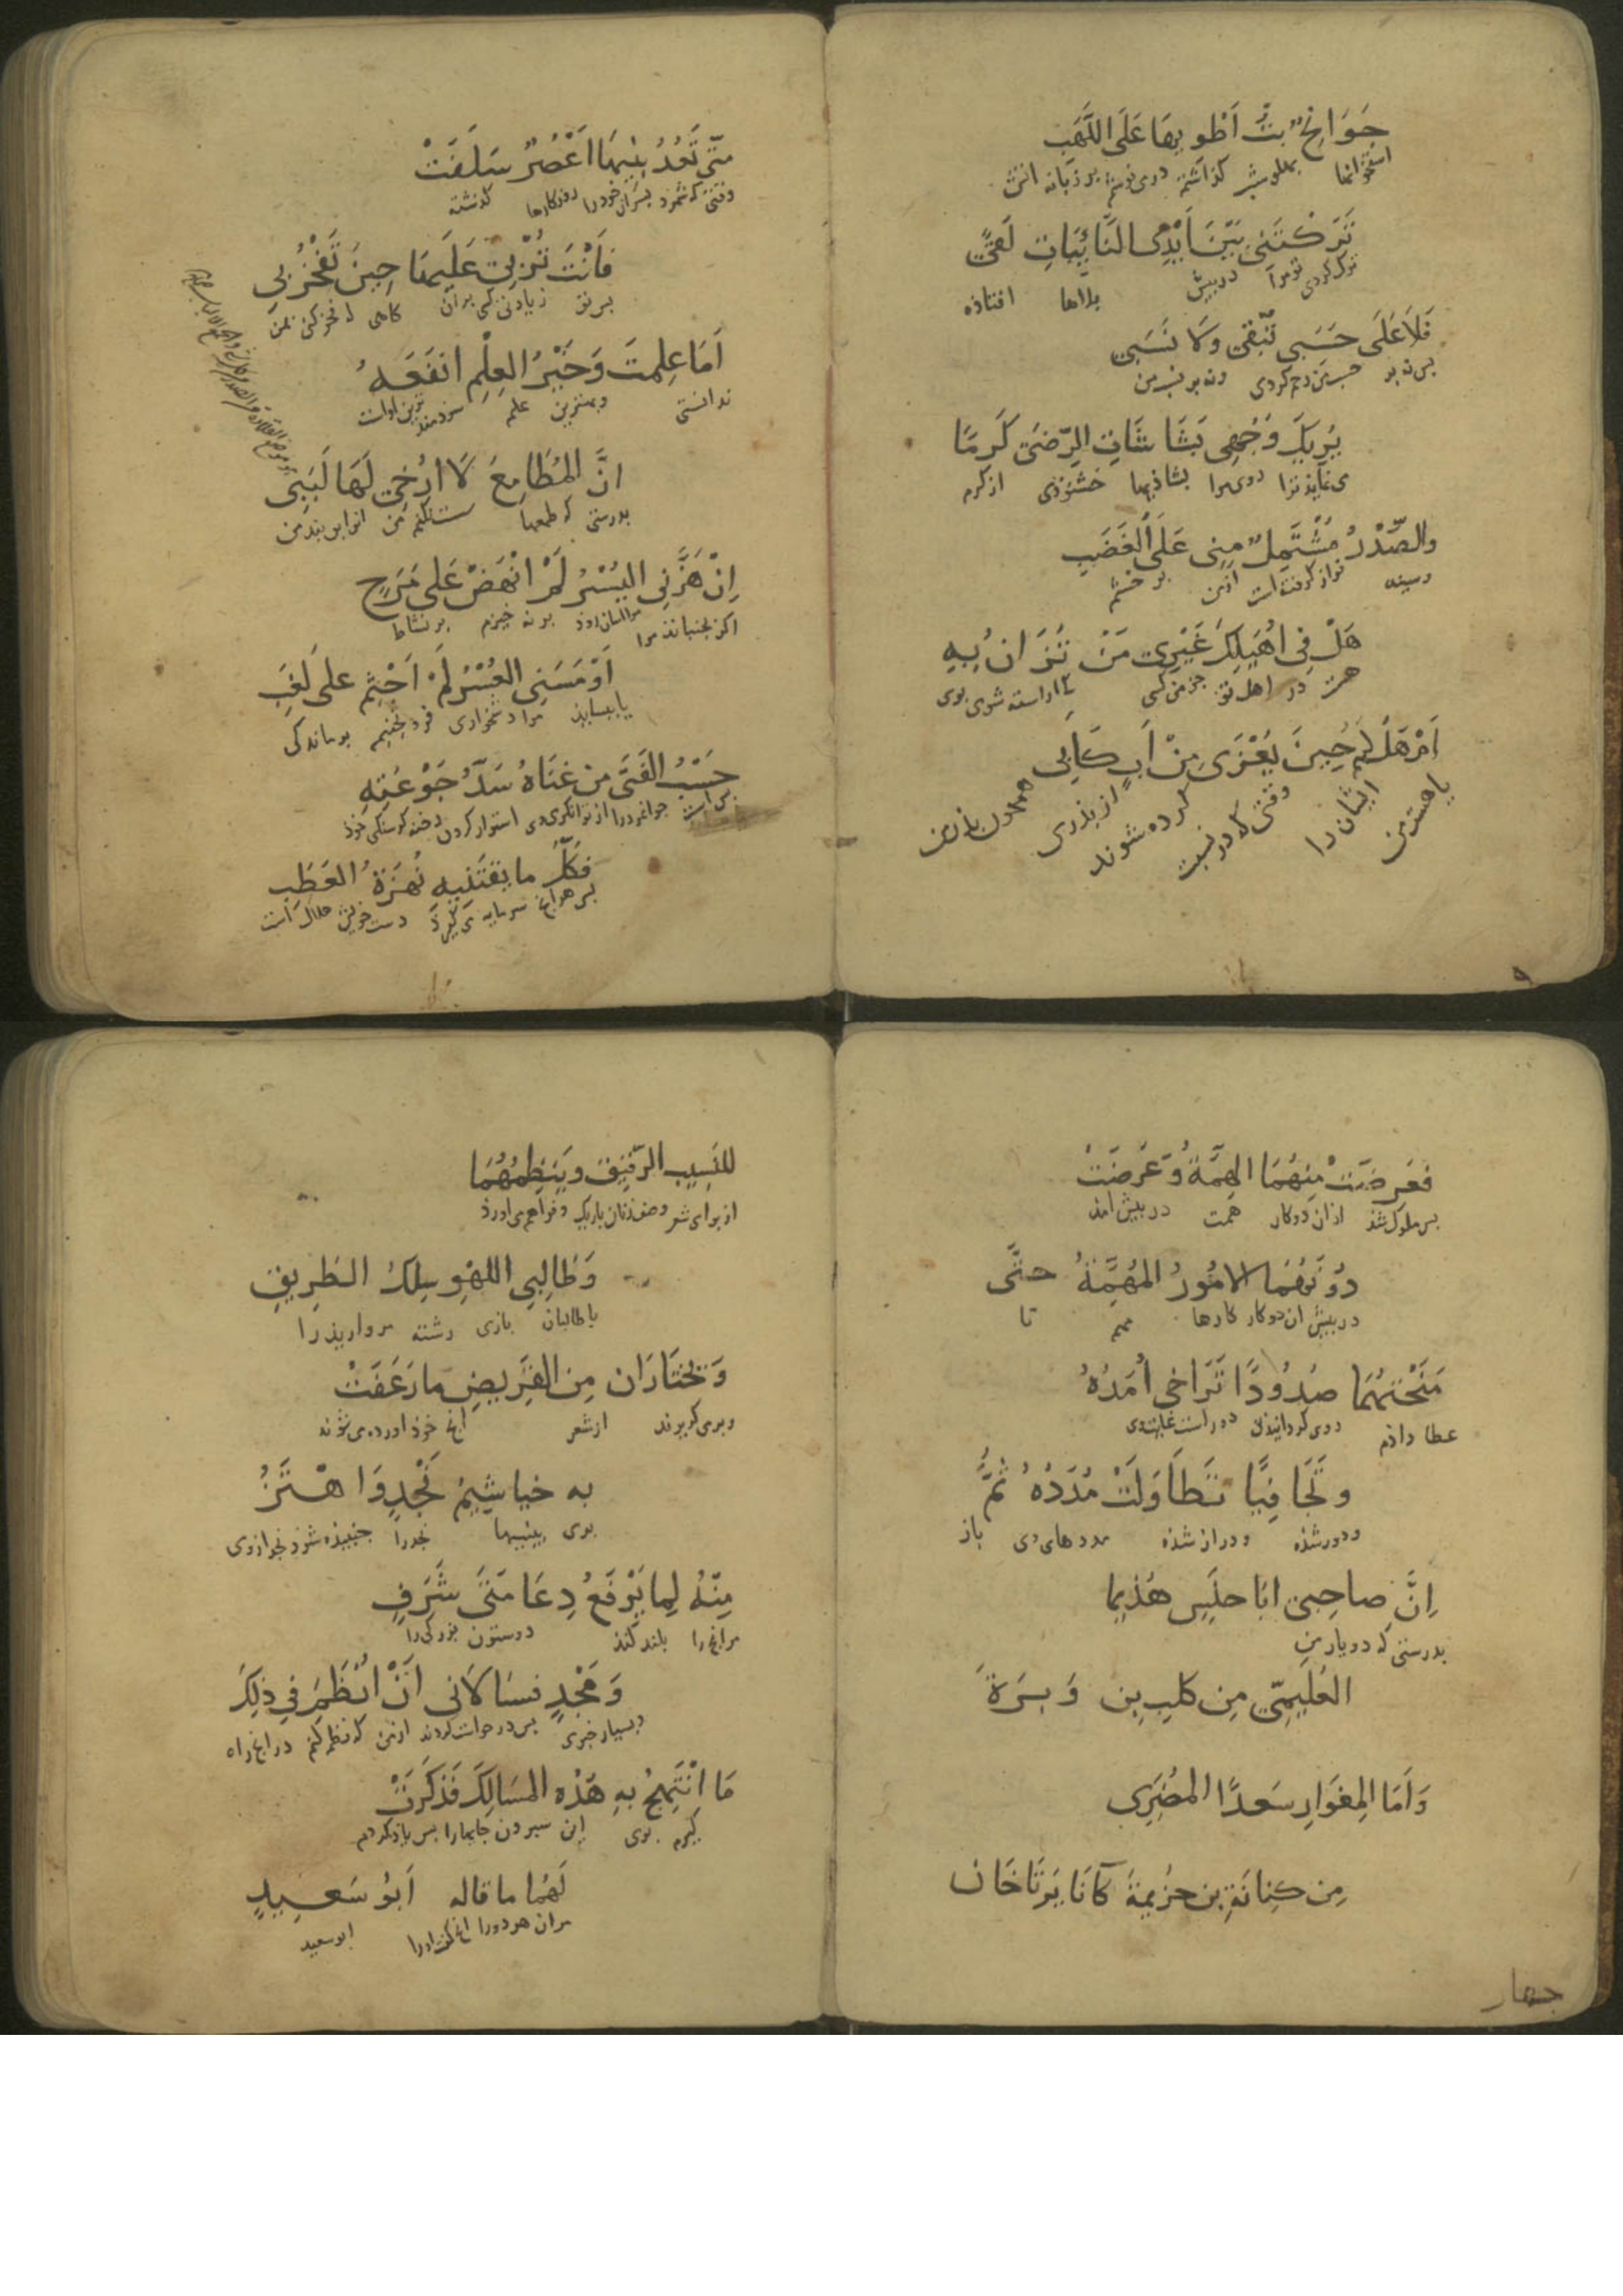 جَوَانِحٌ بِتُّ اَطْوِيهَا عَلَى اللَّهَبِ
استخوانها بهلو شب كذاشته درمى نوشتم بر زبانه اتش
تَرَكْتَنِي بَيْنَ اَيْدِى النَّائِبَاتِ لَقًى
ترك كردى تو مرا در پيش بلاها افتاذه
فَلَا عَلَى حَسَبِي تُبْقِى وَلَا نَسَبِى
بس نه بر حسب من رحم كردى ونه بر نسب من
يُرِيكَ وَجْهِى بَشَاشَاتِ الرِّضَى كَرَمًا
مى نمايذ ترا روى مرا بشاذيها خشنوذى از كرم
والصَّدْرُ مُشْتَمِلٌ مِنِى عَلَى الْغَضَبِ
وسينه فراز كرفته است از من بر خشم
هَلْ فِى اُهَيْلِكَ غَيْرِى مَنْ تُزَانُ بِهِ
هست در اهل تو جز من كسى كه اراسته شوى بوى
اَمْ هَلْ لَهُمْ حِينَ يُعْزَى مِنْ اَبٍ كَاَبِى
يا هست مر ايشان را وقتى كه در نسبت كرده شوند از بذرى همچون بذر من
۹
مَتَى تَعُدُّ بَنِيهَا اَعْصُرٌ سَلَفَتْ
وقتى كه شمرد بسران خوذ را روزكارها كذشته
فَاَنْتَ تُرْبِى عَلَيْهَا حِينَ تَفْخَرُ بِى
بس تو زيادتى كنى بر ان كاهى كه فخر كنى بمن
اَمَا عَلِمتَ وَخَيْرُ العِلْمِ انفَعَهُ
ندانستى وبهترين علم سوذمند ترين اوست
اِنَّ المَطَامِعَ لَا اُرْخِى لَهَا لَبَبِى
بدرستى كه طمعها سست نكنم من انرا بربند من
اِنْ هَزَّنِى اليُسْرُ لَمْ انْهَضْ عَلى مَرَحٍ
اكر بجنباند مرا اسانى بر نه خيزم بر نشاط
اَوْ مَسَنِى العُسْرُ لَمْ اَجْثِمْ على لَغَبِ
يا ببسايذ مرا دشخوارى فرو نجنبم بر ماندكى
حَسْبُ الفَتَى مِن غِنَاهُ سَدُّ جَوْعَتِهِ
بس است جوانمرد را از توانكرى وى استوار كردن رخنه كرسنكى خوذ
فَكُلُّ ما يَقْتَنِيهِ نُهْزَةُ العَطَبِ
بس هرانچ سرمايه مى كيرذ دست خوش هلاك است
فَعَرَضَتْ مِنْهُمَا الهِمَّةُ وَعَرَضَتْ
بس ملول شذ از ان دو كار همت در بيش امذ
دُونَهُمَا الامُورُ المُهِمَّةُ حتَّى
در بيش ان دو كار كارها مهم تا
مَنَحْتُهُمَا صُدُودًا تَرَاخى اَمَدُهُ
عطا داذم روى كردانيذن دور است غايت وى
وتَجَافِيًا تَطَاوَلَتْ مُدَدُهُ ثُمَّ
ودور شذه ودراز شذه مددهاى وى باز
اِنَّ صاحِبِىَّ ابَا حلَيسٍ هُذيما
بدرستى كه دو يار من
العُلَيمِىَّ مِن كلبِ بنِ وَبَرَةَ
وَاَمَا المِغوَارِ سَعدًا المُضَرِى
مِن كِنَانَةِ بن خُزيمةَ كَانَا يَرتَاحَان
جهار
للنَسِيبِ الرَّقيقِ ويَنظِمُهُمَا
از براى شعر وصف زنان باريك وفراهم مى اورذ
وَطَالِبِى اللَهْوِ سِلكُ الطَرِيقِ
با طالبان بازى رشته مرواريذ را
وَيَختَارَانِ مِن القَريضِ ما رَعَفَتْ
وبرمى كزيرند از شعر انچ خوذ اورده مى شوند
بِهِ خياشِيمُ نَجْدٍ وَاهْتَزَّ
بوى بينيها نجد را جنبيذه شوذ نجد از وى
مِنْهُ لِما يَرْفَعُ دِعَامَتَىْ شَرَفٍ
مر انچ را بلند كند دو ستون بزركى را
وَمَجْدٍ فسَالَانى اَنْ اَنْظِمَ فِي ذلِكَ
وبسيار خيرى بس درخواست كردند از من كه نظم كنم در انچ راه
مَا اَنْتَهِجُ بِهِ هَذْهِ المسَالِكَ فَذَكَرتُ
كيرم بوى اين سيرون جايها را بس ياذ كردم
لَهُمَا ما قاله اَبُو سَعِيدٍ
مر ان هر دو را انچ كفت اورا ابو سعيد